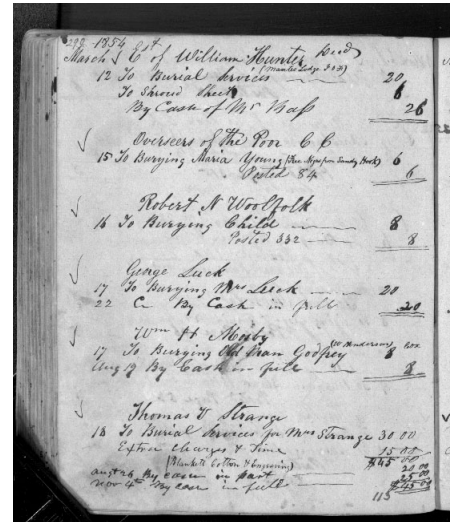 298 1854
March Est of William Hunter Decd
(Manteo Lodge I.O.O.F)
12 To Burial Services 20
To Shroud Sheet 6
By Cash of Mr Bass 26
Overseers of the Poor C C
15 To Burying Maria Young 6
Posted 84 6
Robert N Woolfolk
16 To Burying Child 8
Posted 332 8
George Luck
17 To Burying Mrs Luck 20
22 Cr By Cash in full 20
Wm H Mosby
17 To Burying Old Man Godfrey 8
Aug 19 By Cash in full 8
Thomas V Strange
18 To Burial Services for Mrs Strange 30 00
Extra charges & Time 15 00
$45 00
August 26 By Cash in part 20 00
Nov 4th By Cash in full 25 00
$45 00
115